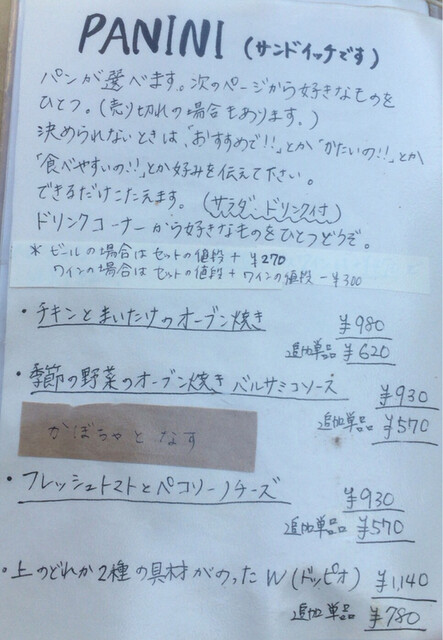 PANINI (サンドイッチです)
パンが選べます。次のページから好きなものを
ひとつ。(売り切れの場合もあります。)
決められないときは、「おすすめで!!」とか「かたいの!!」とか
「食べやすいの!!」とか好みを伝えて下さい。
できるだけこたえます。(サラダ、ドリンク付)
ドリンクコーナーから好きなものをひとつどうぞ。
* ビールの場合は セットの値段 + ¥270
ワインの場合は セットの値段 + ワインの値段 - ¥300
・チキンとまいたけのオーブン焼き ¥980
追加単品 ¥620
・季節の野菜のオーブン焼き バルサミコソース ¥930
追加単品 ¥570
かぼちゃ と なす
・フレッシュトマトとペコリーノチーズ ¥930
追加単品 ¥570
・上のどれか2種の具材がのった W(ドッピオ) ¥1,140
追加単品 ¥780